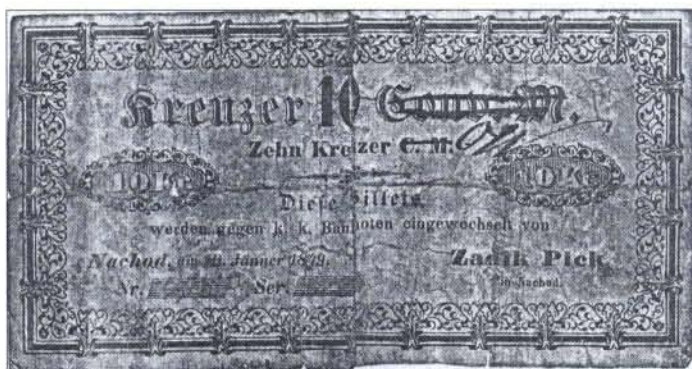 Kreuzer 10 Conv. M.
Zehn Kreizer C. M.
10 Kr. 10 Kr.
Diese Billets
werden gegen k. k. Banknoten eingewechselt von
Nachod, am Jänner 1849.
Zadik Pick
in Nachod.
Nr. Ser.